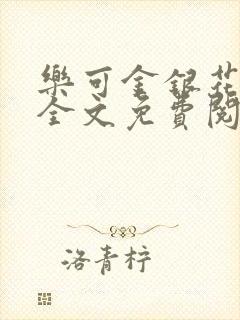 樂可金銀花
全文免費閱
洛青梓